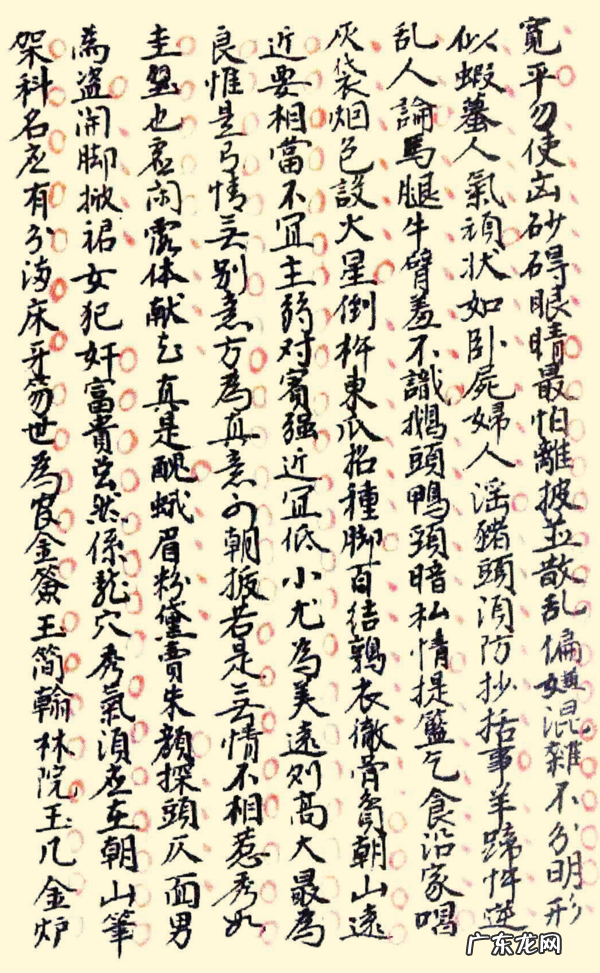 寬平勿使凶砂碍眼晴最怕離披並散乱偏嫌混雜不分明形
似蝦蟇人氣頑状如卧屍婦人淫豬頭消防抄括事羊蹄忤逆
乱人論馬腿牛臂羞不識鵝頭鴨頸暗私情提籃乞食沿家唱
灰袋烟包設火星倒杵東瓜招種脚百结鶉衣徹骨貧朝山遠
近要相當不宜主弱对賓强近宜低小尤為美遠则高大最為
良惟是弓情無别意方為真意可朝扳若是無情不相惹秀如
圭璧也虚闲露体献花真是醜蛾眉粉黛賣朱顔探頭仄面男
為盗開脚掀裙女犯奸富貴雖然係龍穴秀氣須应在朝山筆
架科名应有分海床牙笏世為官金簽玉简翰林院玉几金炉
广东龙网